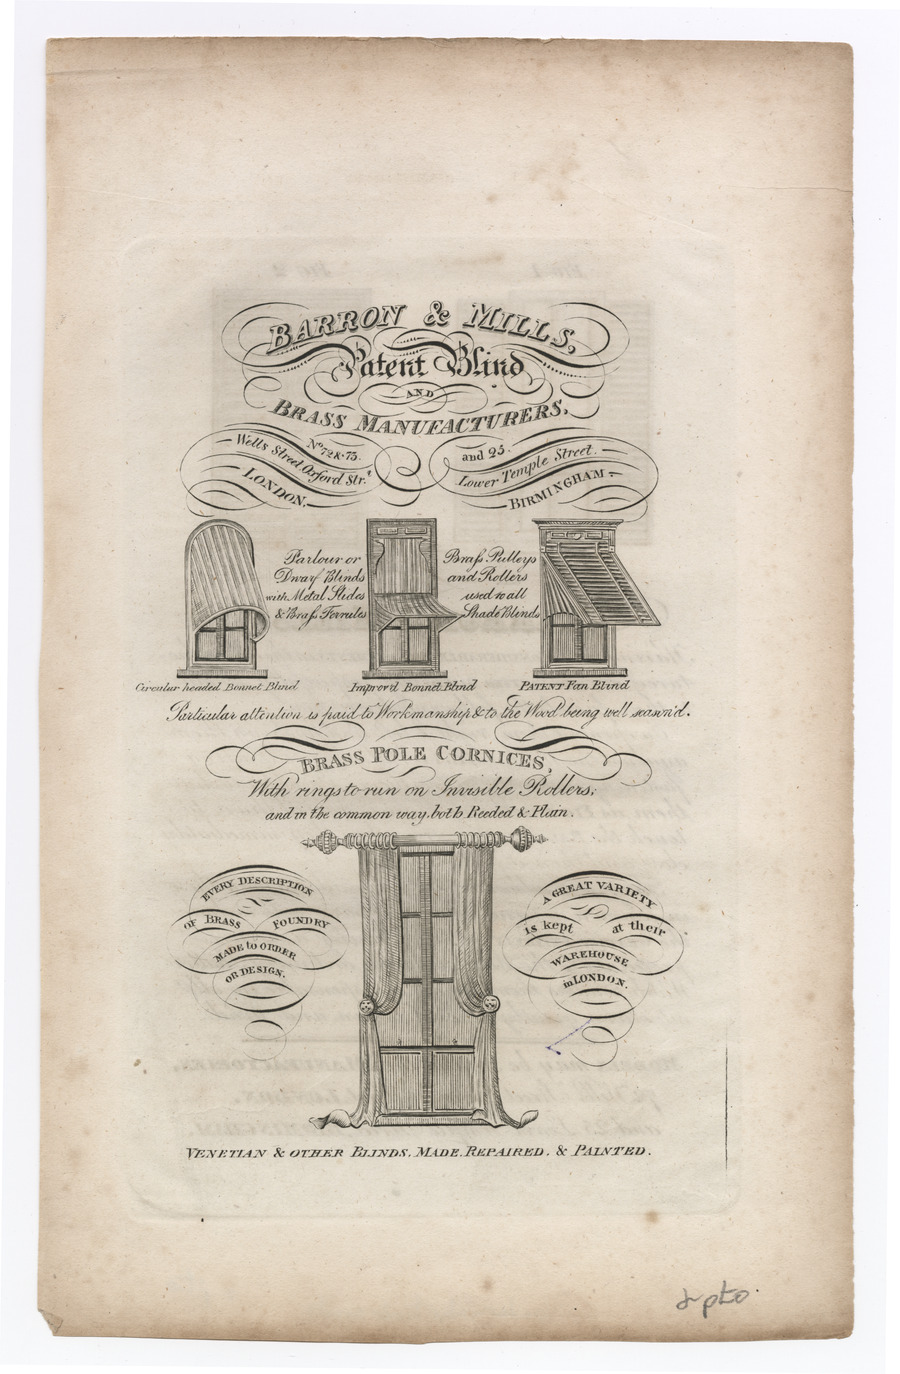 BARRON & MILLS,
Patent Blind
AND
BRASS MANUFACTURERS,
No. 72 & 73.
Wells Street Oxford Str.t
LONDON,
and 25.
Lower Temple Street.
BIRMINGHAM.
Parlour or
Dwarf Blinds
with Metal Slides
& Brass Ferrules
Brass Pulleys
and Rollers
used to all
Shade Blinds
Circular headed Bonnet Blind
Improv'd Bonnet Blind
PATENT Fan Blind
Particular attention is paid to Workmanship & to the Wood being well season'd.
BRASS POLE CORNICES,
With rings to run on Invisible Rollers;
and in the common way, both Reeded & Plain.
EVERY DESCRIPTION
OF BRASS FOUNDRY
MADE to ORDER
OR DESIGN.
A GREAT VARIETY
is kept at their
WAREHOUSE
in LONDON.
VENETIAN & OTHER BLINDS, MADE, REPAIRED, & PAINTED.